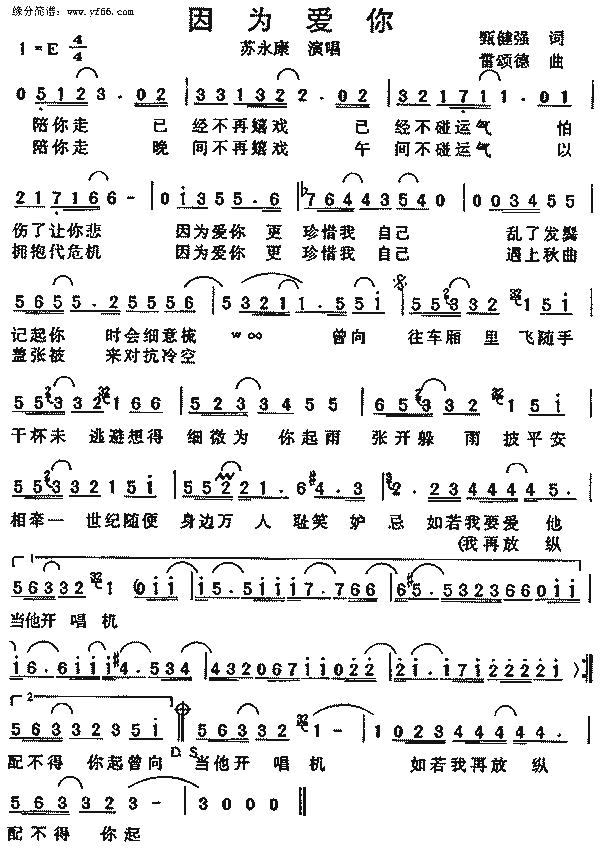 缘分简谱: www.yf66.com
因为爱你
1=E 4/4
苏永康 演唱
甄健强 词
雷颂德 曲
0 5 1 2 3 . 0 2 3 3 1 3 2 2 . 0 2 3 2 1 7 1 1 . 0 1
陪你走 已 经不再嬉戏 已 经不碰运气 怕
陪你走 晚 间不再嬉戏 午 间不碰运气 以
2 1 7 1 6 6 - 0 i 3 5 5 . 6 ♭7 6 4 4 3 5 4 0 0 0 3 4 5 5
伤了让你悲 因为爱你 更 珍惜我 自己 乱了发鬓
拥抱代危机 因为爱你 更 珍惜我 自己 遇上秋曲
5 6 5 5 . 2 5 5 5 6 5 3 2 1 1 . 5 5 i 5 5 3 3 2 1 5 i
记起你 时会细意梳 曾向 往车厢 里 飞随手
盖张被 来对抗冷空
5 5 3 3 2 1 6 6 5 2 3 3 4 5 5 6 5 3 3 2 1 5 i
干杯未 逃避想得 细微为 你起雨 张开躲 雨 披平安
5 5 3 3 2 1 5 i 5 5 2 2 1 . 6 #4 . 3 2 . 2 3 4 4 4 4 5 .
相牵一 世纪随便 身边万 人 耻笑 妒 忌 如若我要爱 他
(我再放 纵
1
5 6 3 3 2 1 (0 i i i 5 . 5 i i i 7 . 7 6 6 6 #5 . 5 3 2 3 6 6 0 i i
当他开 唱机
i 6 . 6 i i i #4 . 5 3 4 4 3 2 0 6 7 i i 0 2 2 2 i . i 7 i 2 2 2 2 i
2
5 6 3 3 2 3 5 i 5 6 3 3 2 1 - 1 0 2 3 4 4 4 4 4 .
配不得 你起曾向 D.S. 当他开 唱机 如若我再放 纵
5 6 3 3 2 3 - 3 0 0 0
配不得 你起